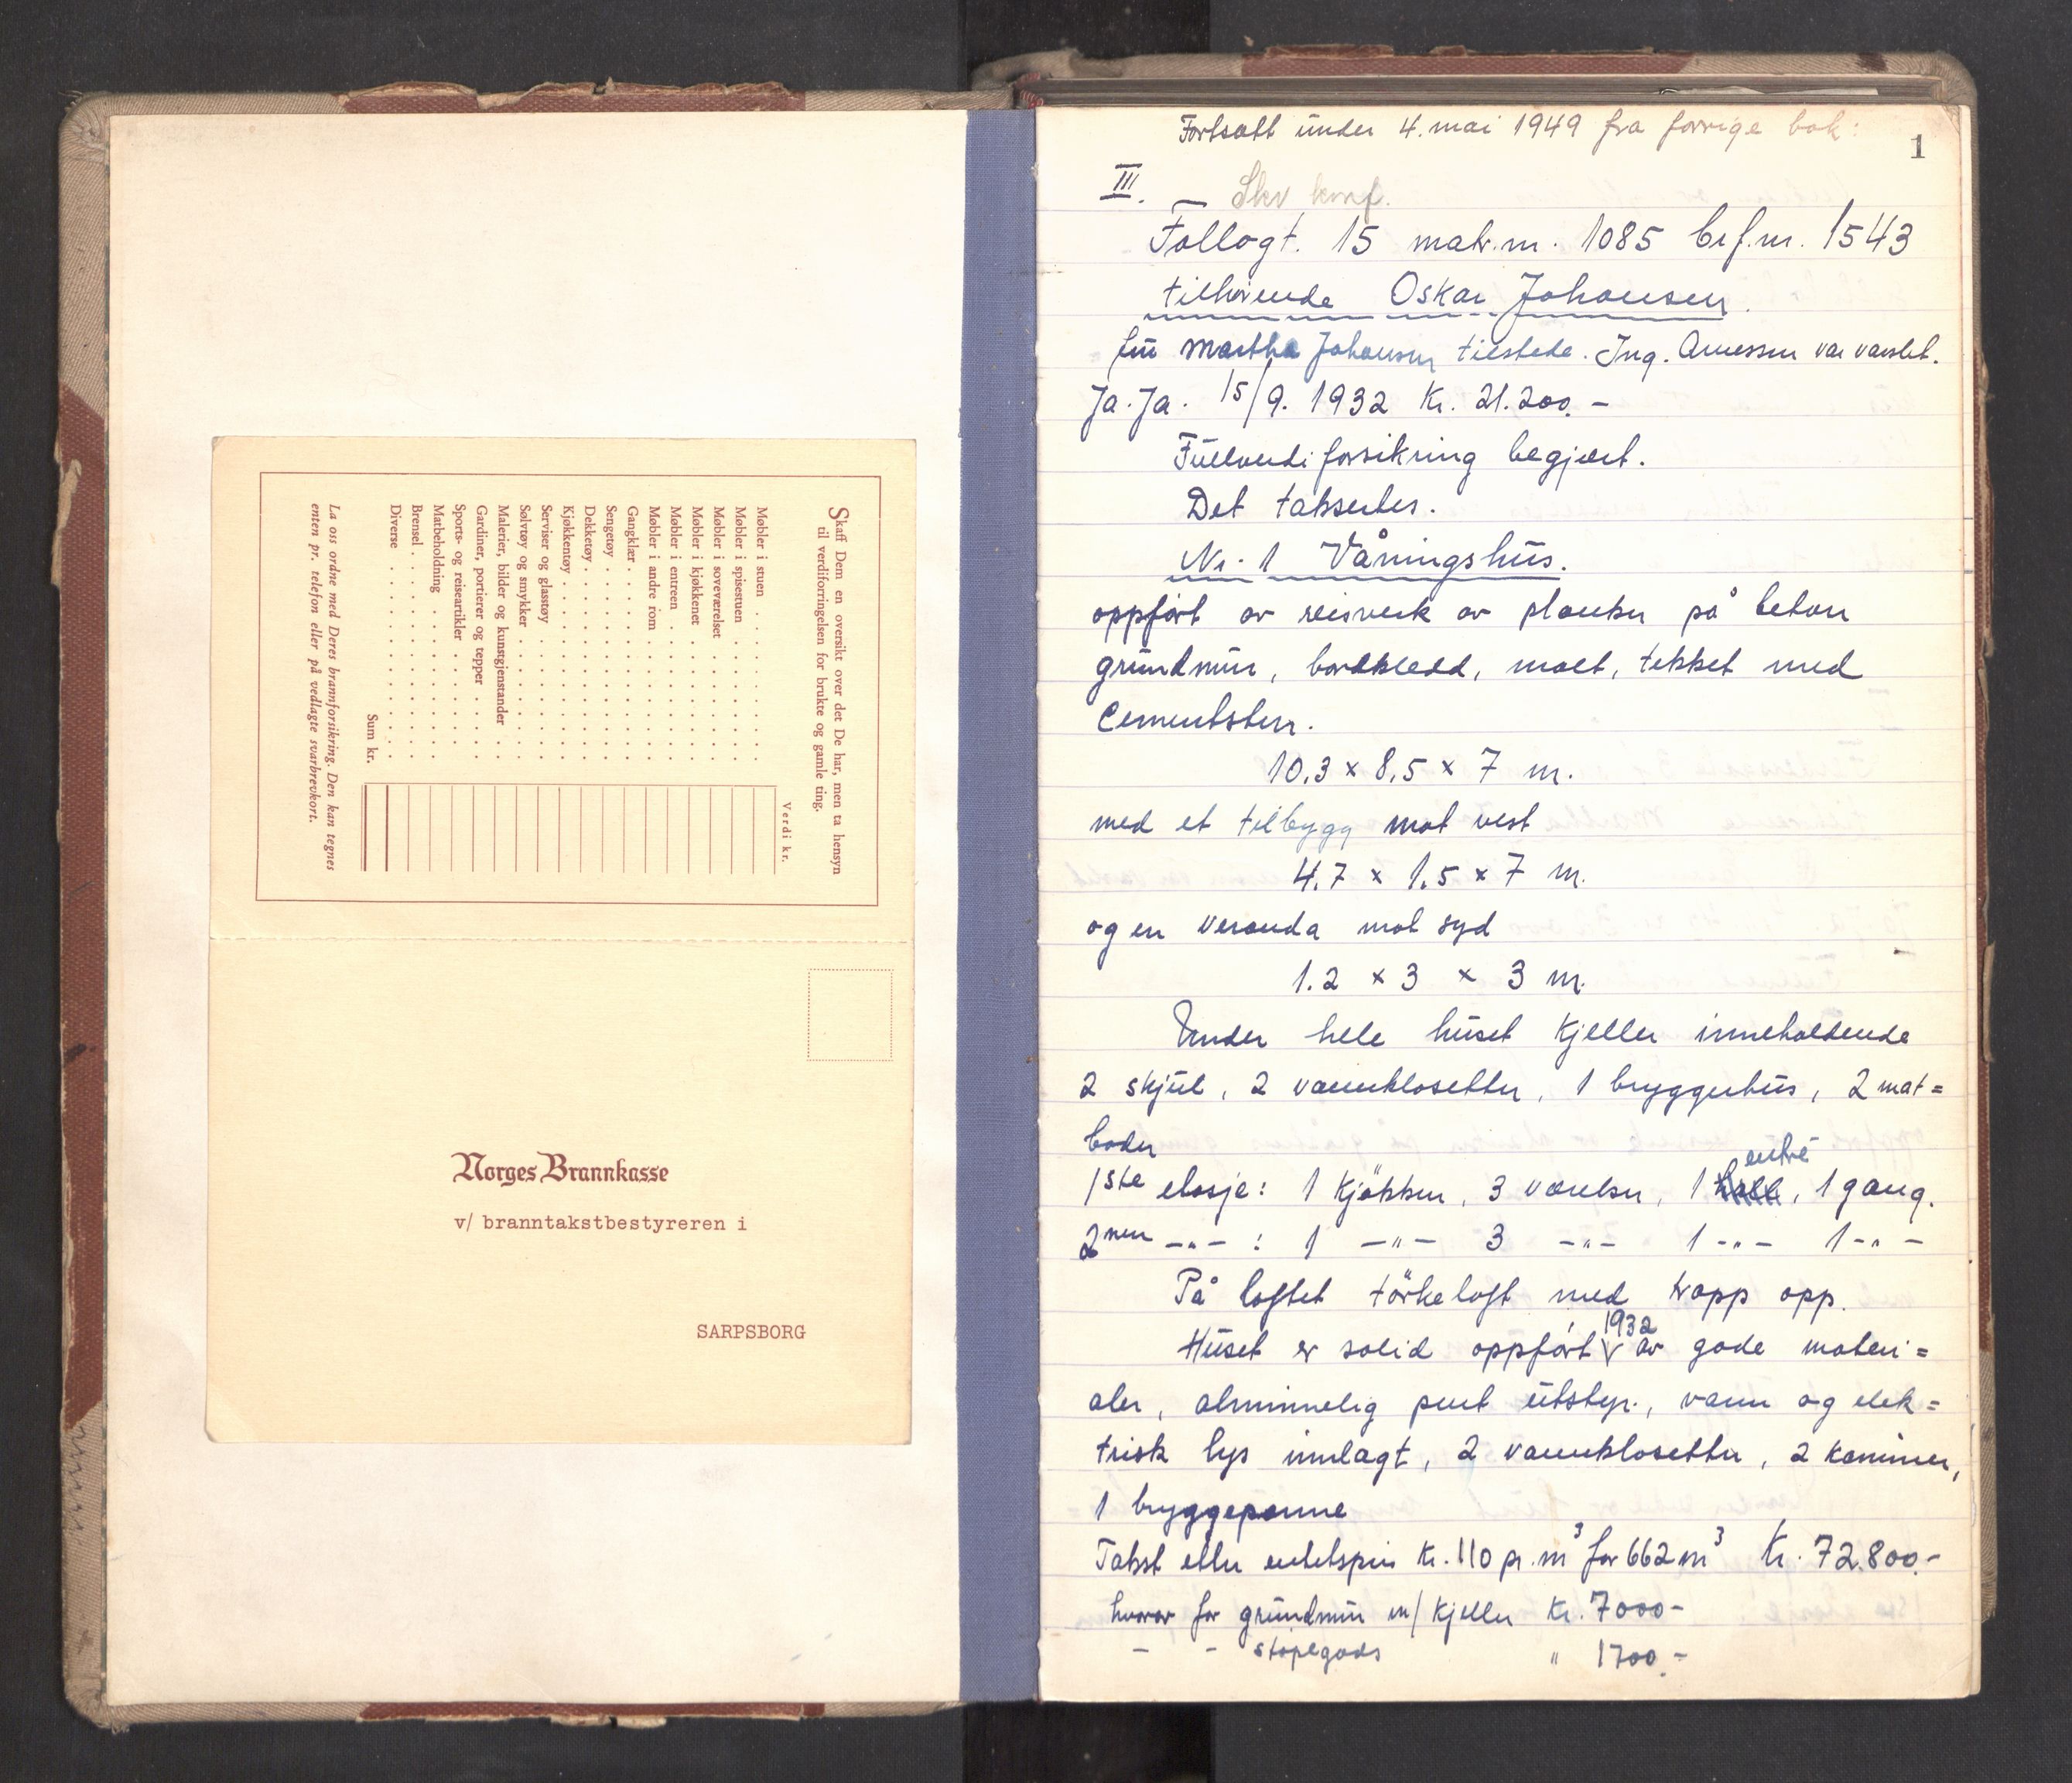 Skaff Dem en oversikt over det De har, men ta hensyn
til verdiforringelsen for brukte og gamle ting.
Verdi kr.
Møbler i stuen . . . . . . .
Møbler i spisestuen . . . . . .
Møbler i soveværelset . . . . .
Møbler i kjøkkenet . . . . . .
Møbler i entreen . . . . . . .
Møbler i andre rom . . . . . .
Gangklær . . . . . . . . .
Sengetøy . . . . . . . . .
Dekketøy . . . . . . . . .
Kjøkkentøy . . . . . . . . .
Serviser og glasstøy . . . . . .
Sølvtøy og smykker . . . . . .
Malerier, bilder og kunstgjenstander . .
Gardiner, portierer og tepper . . . .
Sports- og reiseartikler . . . . .
Matbeholdning . . . . . . .
Brensel . . . . . . . . . .
Diverse . . . . . . . . . .
Sum kr.
La oss ordne med Deres brannforsikring. Den kan tegnes
enten pr. telefon eller på vedlagte svarbrevkort.
Norges Brannkasse
v/ branntakstbestyreren i
SARPSBORG
Fortsatt under 4. mai 1949 fra forrige bok:
1
III.
Skv konf.
Follogt. 15 matr.nr. 1085 br.f.nr. 1543
tilhørende Oskar Johansen.
fru Martha Johansen tilstede. Ing. Arnessen var varslet.
Ja. Ja. 15/9. 1932 Kr. 21.200.-
Fullverdiforsikring begjært.
Det taksertes.
Nr. 1 Våningshus.
oppført av reisverk av planker på beton
grundmur, bordkledd, malt, tekket med
Cementsten.
10.3 x 8.5 x 7 m.
med et tilbygg mot vest
4.7 x 1.5 x 7 m.
og en veranda mot syd
1.2 x 3 x 3 m.
Under hele huset kjeller inneholdende
2 skjul, 2 vannklosetter, 1 bryggerhus, 2 mat=
boder
1ste etasje: 1 kjökken, 3 værelser, 1 entré, 1 gang.
2nen -"- : 1 -"- 3 -"- 1 -"- 1 -"-
På loftet törkeloft med trapp opp.
Huset er solid oppført 1932 av gode materi=
aler, alminnelig pent utstyr, vann og elek=
trisk lys innlagt, 2 vannklosetter, 2 kaminer,
1 bryggepanne
Takst etter enhetspris kr. 110 pr. m³ for 662 m³ Kr. 72.800.-
hvorav for grundmur m/ kjeller Kr. 7000-
- - støpegods " 1700.-